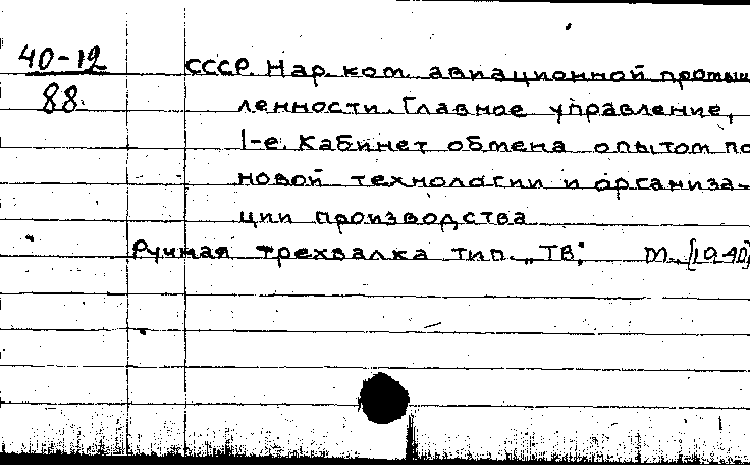 40-12
88.
СССР. Нар. ком. авиационной промыш
ленности. Главное управление,
1-е. Кабинет обмена опытом по
новой технологии и организа-
ции производства
Ручная трехвалка тип. „ТВ". М., [19-40]